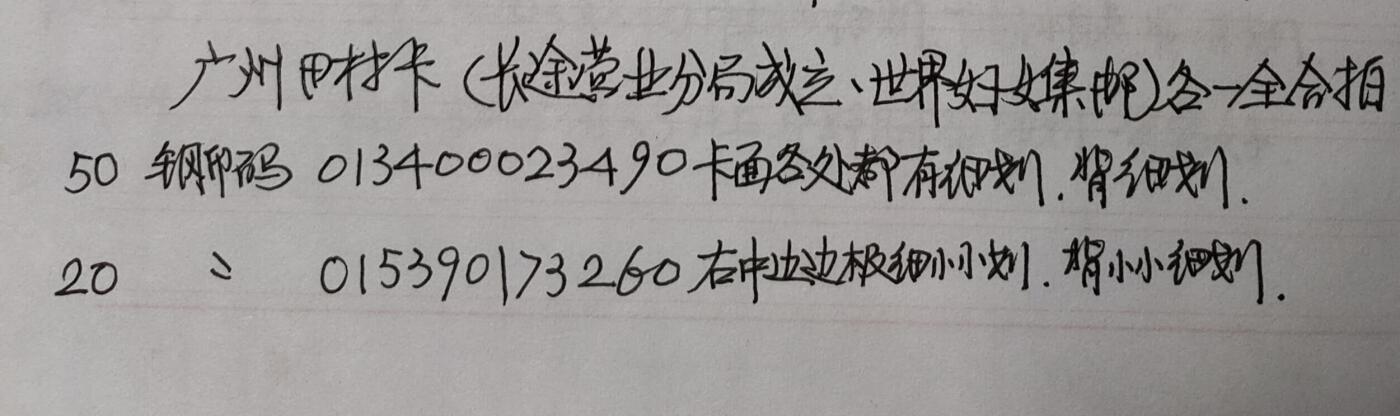 广州田村卡(长途营业分局成立、世界妇女集邮)各一全合拍
50 钢印码 013400023490卡面各处都有细划.背细划.
20 〃 015390173260右中边边极细小小划.背小小细划.